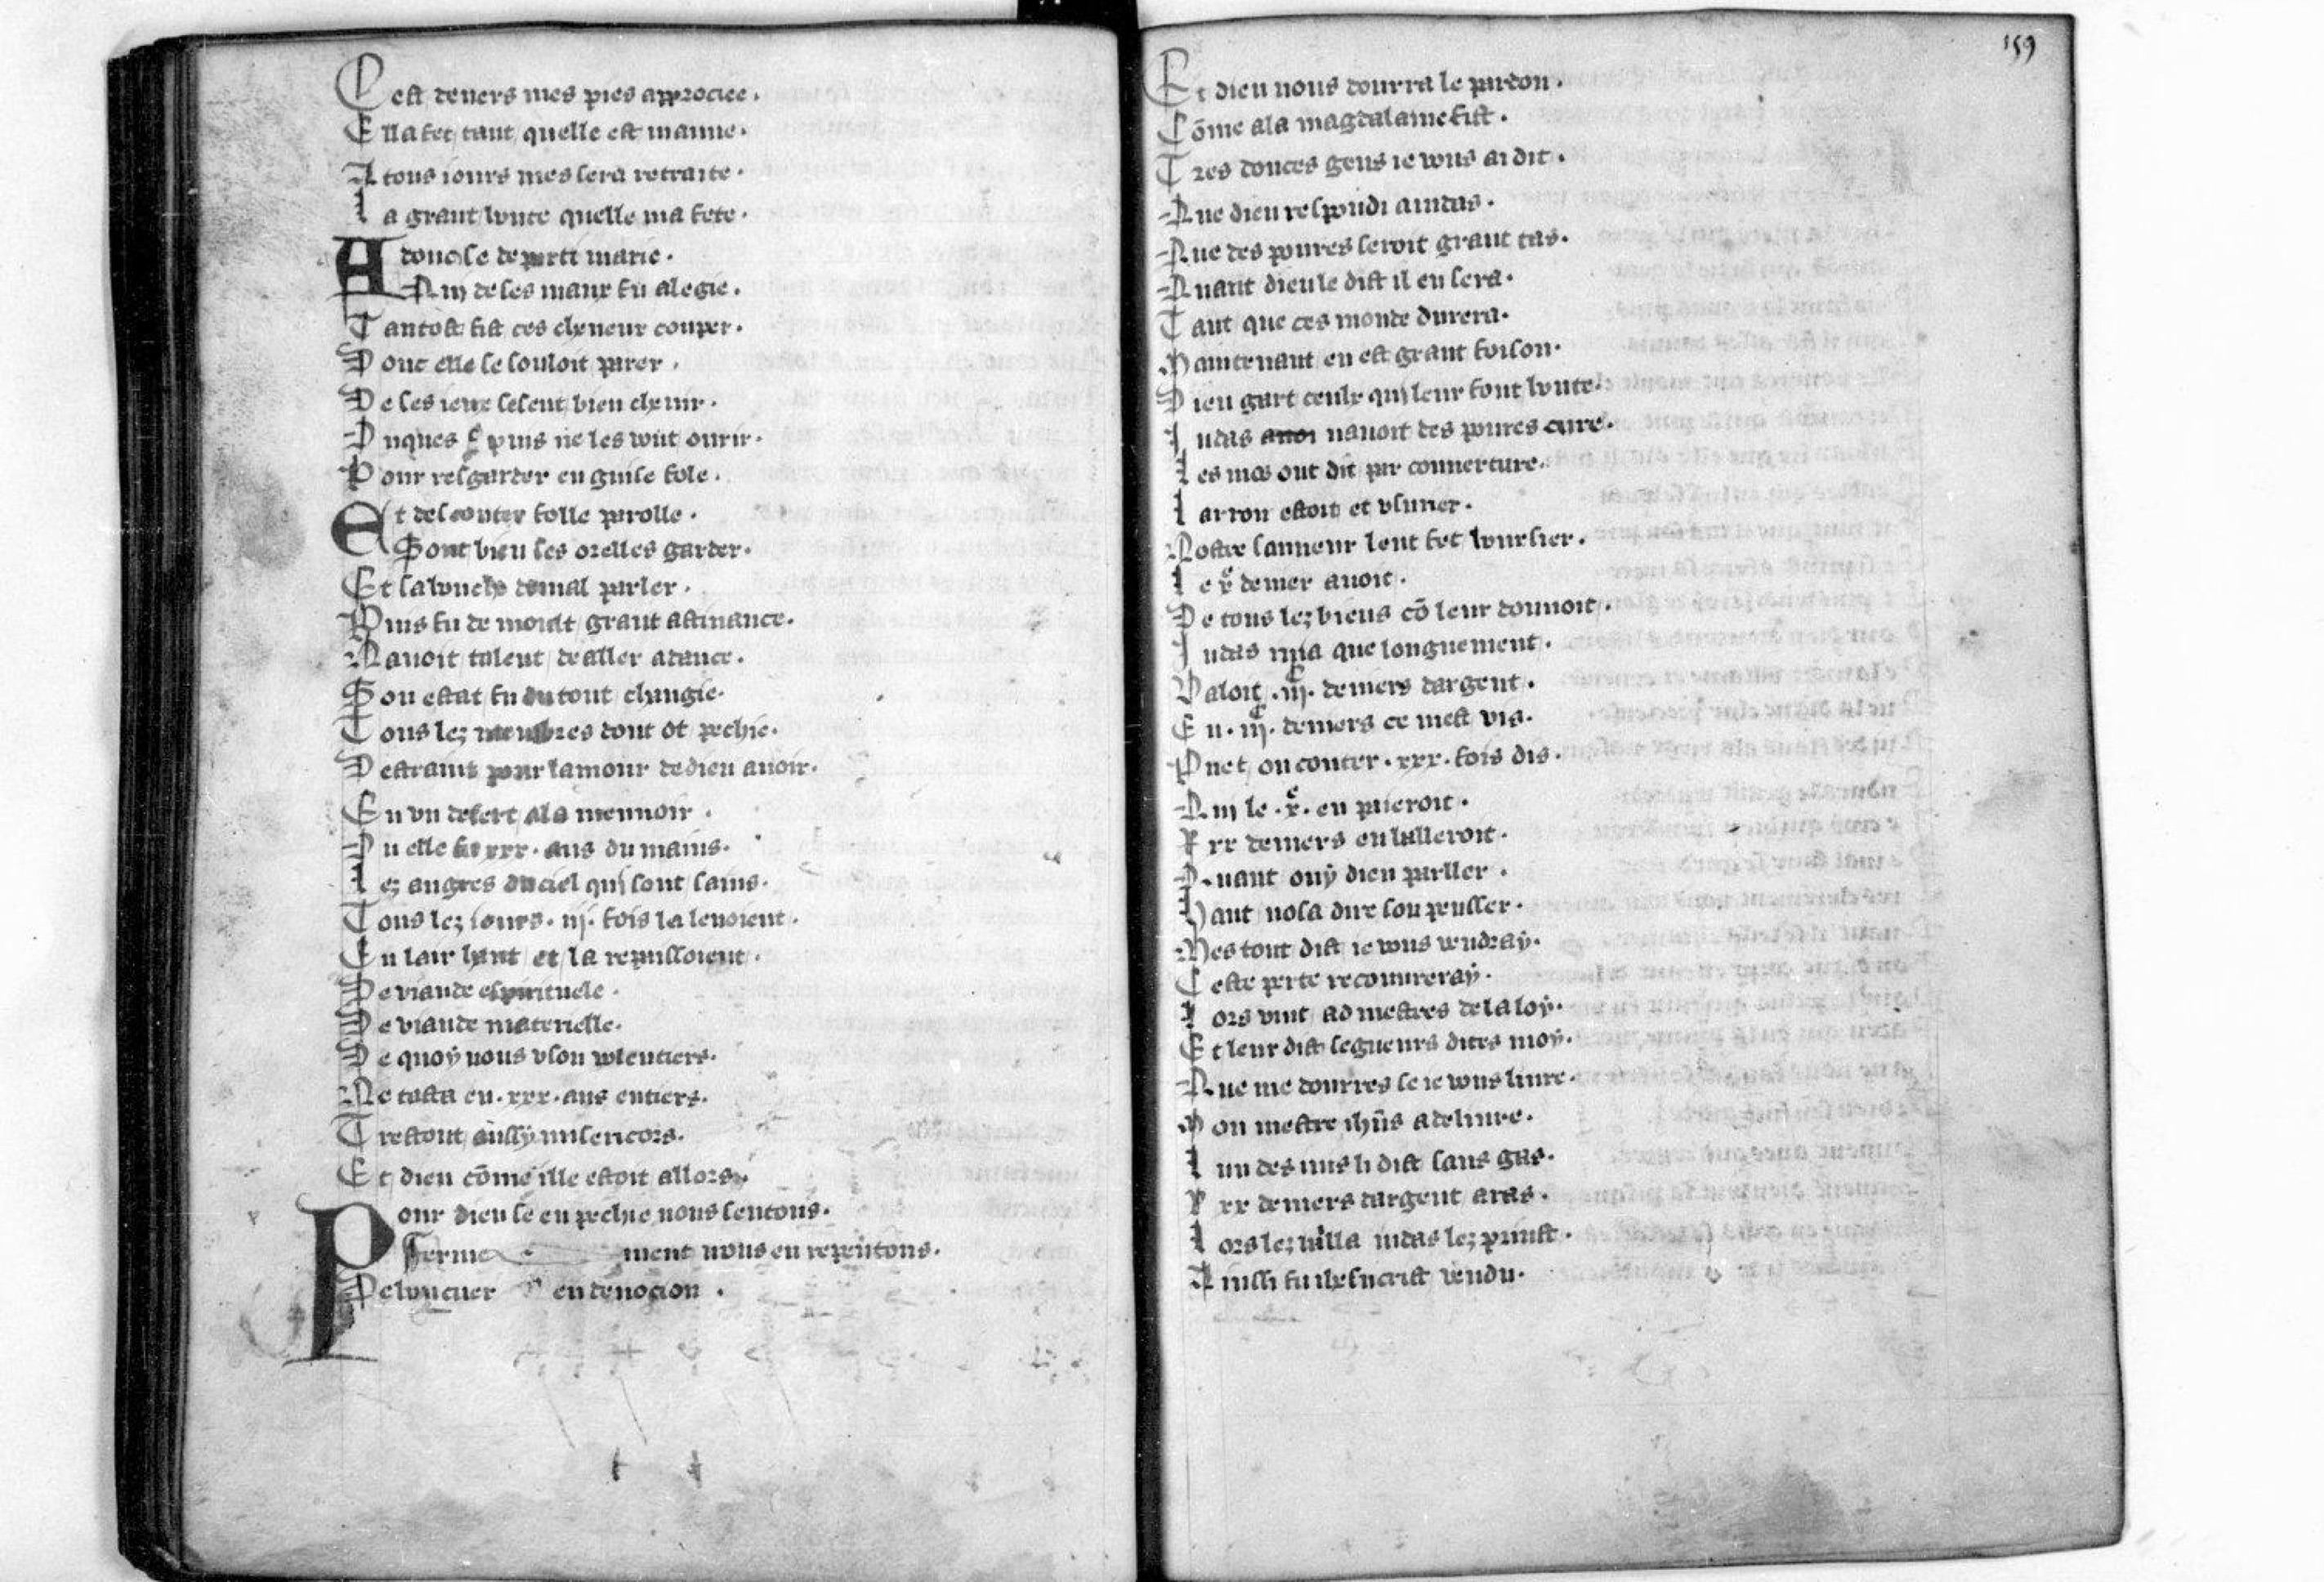 C est deuers mes pies approciee.
E lla fet tant quelle est manne.
A tous iours mes sera retraite.
L a grant bonte quelle ma fete.
A donc se departi marie.
Qui de ses maux fu alegie.
T antost fist ces cheueux couper.
D ont elle se souloit parer.
D e ses ieux seseut bien cheuir.
O nques puis ne les vout ouurir.
P our resgarder en guise fole.
E t descouter folle parolle.
S out bien ses orelles garder.
E t sa bouche de mal parler.
P uis fu de moult grant astinance.
N auoit talent de aller a dance.
S on estat fu du tout changie.
T ous lez menbres dont ot pechie.
D estraint pour lamour de dieu auoir.
E n vn desert ala mennoir.
O u elle fu xxx. ans du mains.
L ez angres du ciel qui sont sains.
T ous lez iours. iij. fois la leuoient.
E n lair haut et la repaissoient.
D e viande espirituele.
D e viande materielle.
D e quoy nous vson volentiers.
N e tasta en. xxx. ans entiers.
T restout aussy misericors.
E t dieu cōme ille estoit allors.
P our dieu se en pechie nous sentons.
Ferme ment nous en repentons.
De bon cuer en deuocion.
E t dieu nous dourra le pardon.
C ōme a la magdalaine fist.
T res douces gens ie vous ai dit.
Q ue dieu respondi a iudas.
Q ue des poures seroit grant tas.
Q uant dieu le dist il en sera.
T ant que ces monde durera.
M aintenant en est grant foison.
D ieu gart ceulx qui leur font bonte.
I udas auoi nauoit des poures cure.
L es mos out dit par couuerture.
L arron estoit et vsurier.
N ostre sauueur leut fet boursier.
L e xͤ denier auoit.
D e tous lez biens cō leur donnoit.
I udas que longuement.
V aloit .iijͨ. deniers dargent.
E n. iijͨ. deniers ce mest vis.
P uet on conter. xxx. fois dis.
Q ui le .xͤ. en paieroit.
X xx deniers en bailleroit.
Q uant ouy dieu parller.
H aut nosa dire son pensser.
M es tout dist ie vous vendray.
C este perte recouureray.
L ors vint ao mestres de la loy.
E t leur dist segneurs dites moy.
Q ue me dourres se ie vous liure.
M on mestre ihūs a deliure.
L un des iuis li dist sans gas.
X xx deniers dargent aras.
L ors lez bailla iudas lez prinst.
A inssi fu ihesucrist vendu.
159